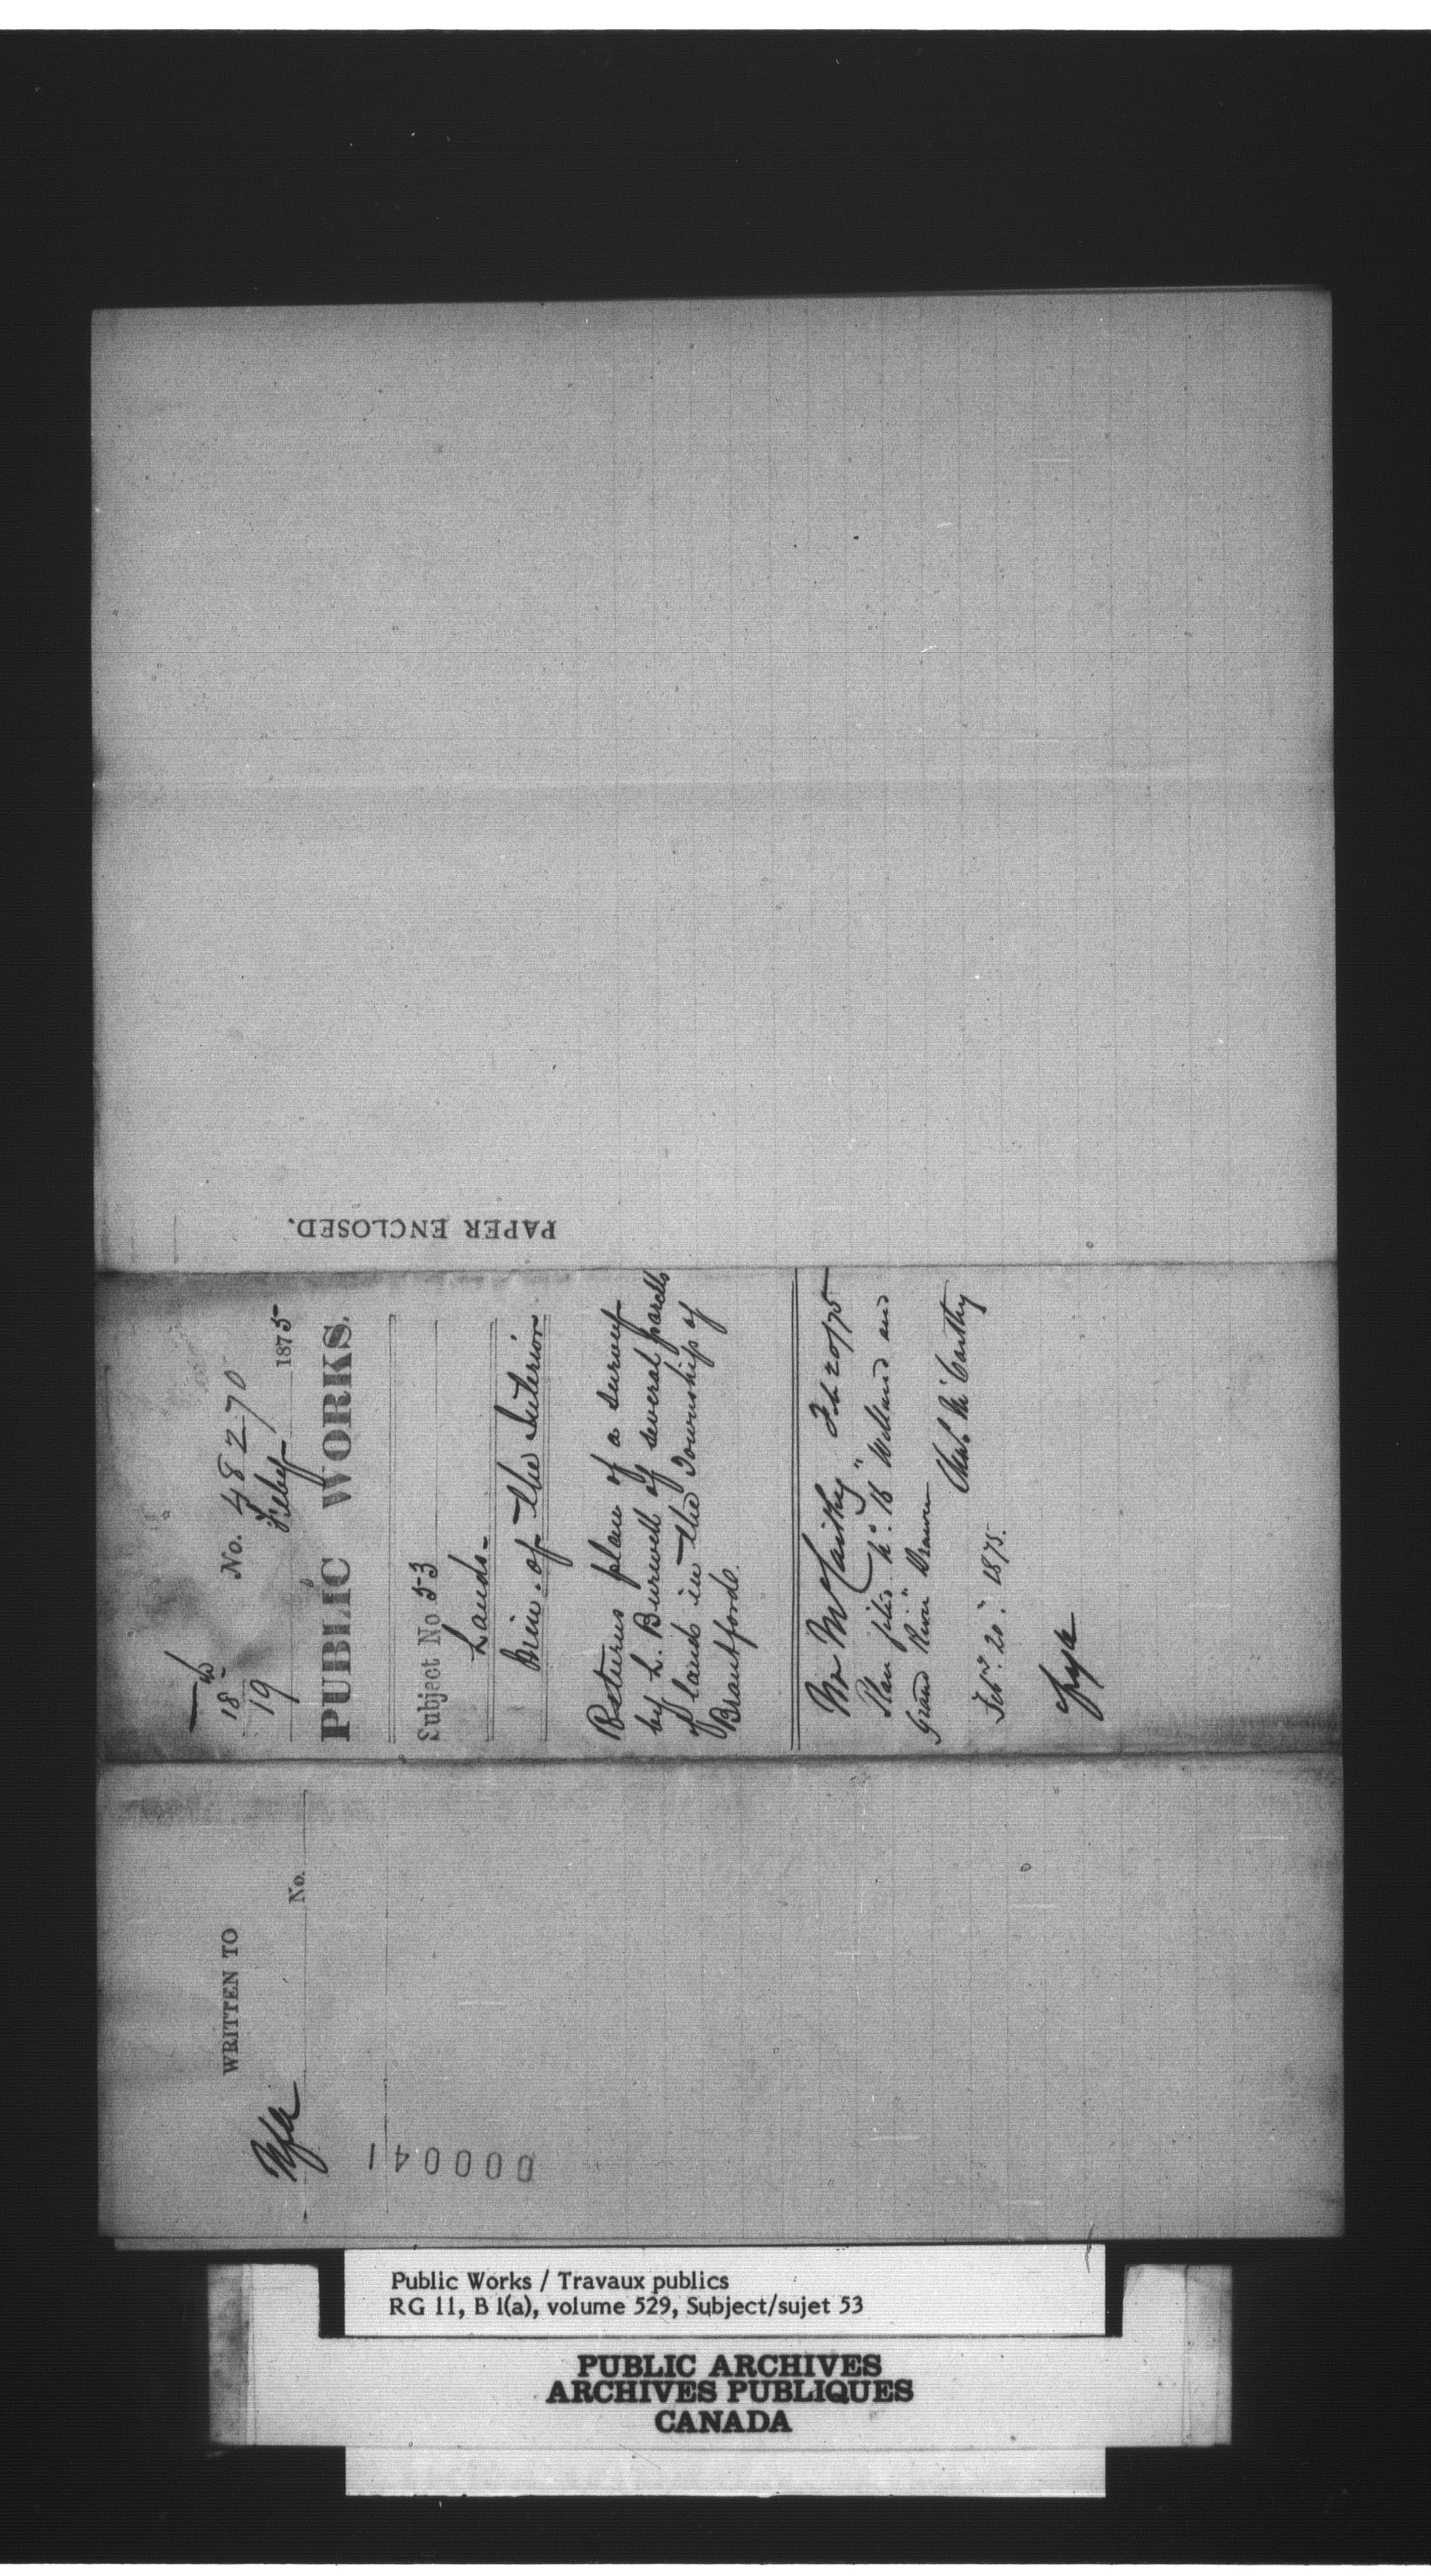 PAPER ENCLOSED.
No. 48270
18
19 Feby 1875
PUBLIC WORKS.
Subject No 53
Lands-
Min. of the Interior
Returns plan of a survey
by L. Burwell of several parcells
of lands in the Township of
Brantford.
Mr McCarthy Feb 20/75
Plan filed No. 18 "Welland and
Grand River" Drawer
Chas. McCarthy
Feby. 20. 1875.
WRITTEN TO
No.
000041
Public Works / Travaux publics
RG 11, B 1(a), volume 529, Subject/sujet 53
PUBLIC ARCHIVES
ARCHIVES PUBLIQUES
CANADA